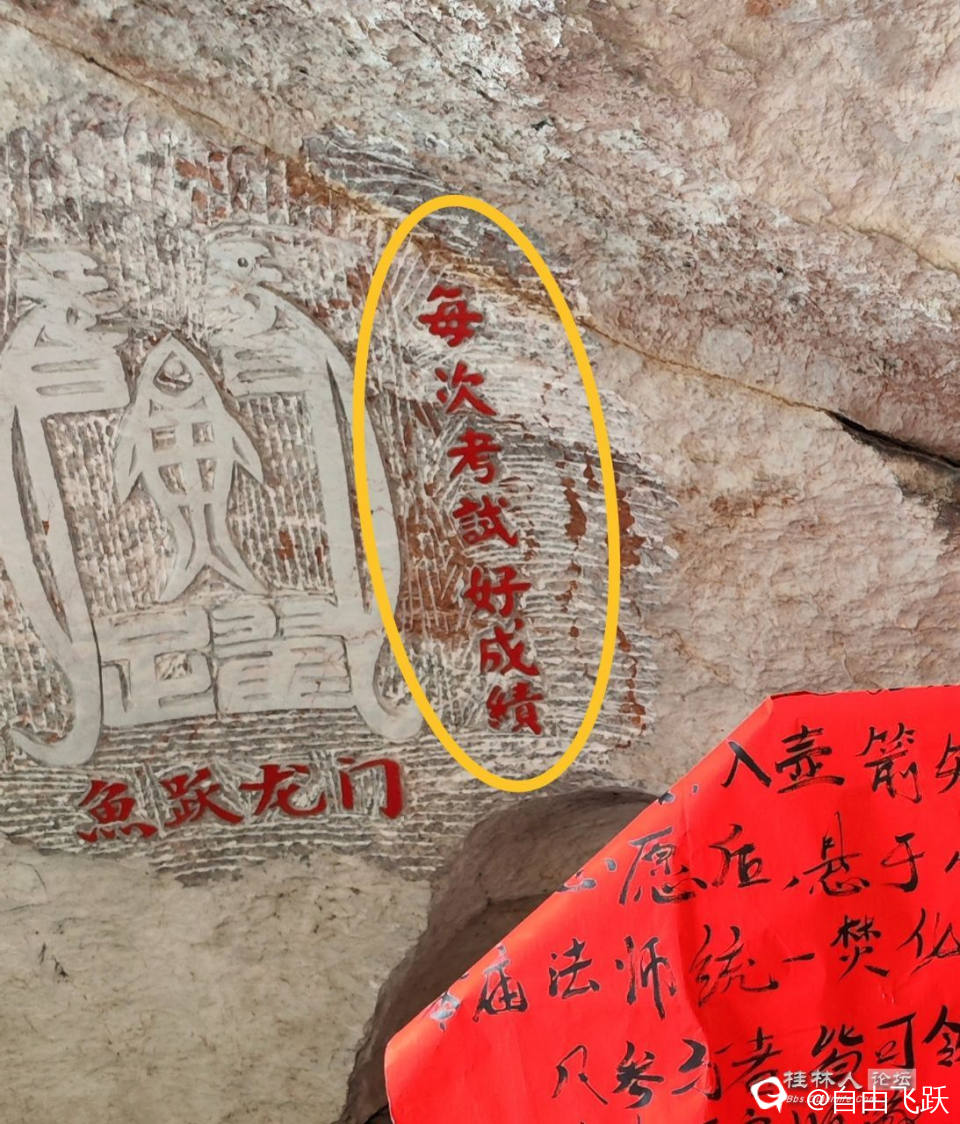 每次考試好成績
魚跃龙门
入壶箭矢
愿后,悬于
法师统一焚化
及参与者皆可领
桂林人论坛
@自由飞跃